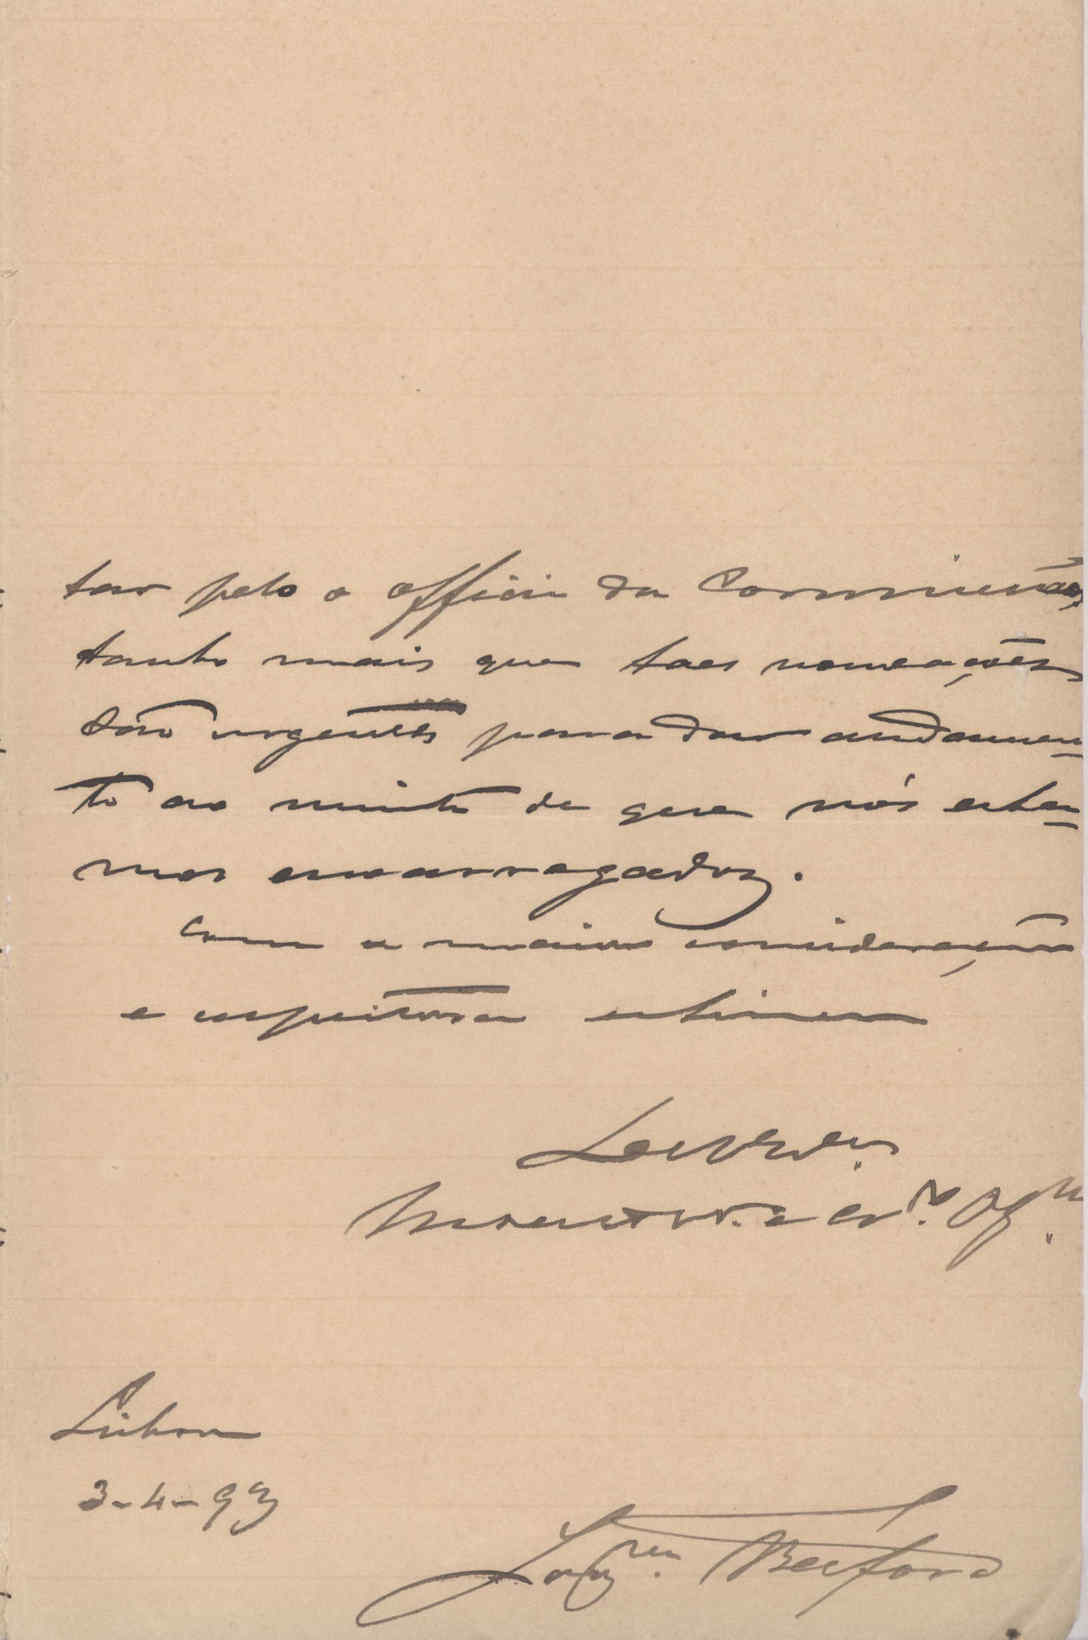 tar pelo o officio da Commissão,
tanto mais que taes nomeações
são urgentes para dar andamen-
to ao muito de que nós esta-
mos encarregados.
Com a maior consideração
e respeitosa estima
De V. Ex.
e Cr.º Obg.
Lisboa
3-4-93
Joaq.m Belford